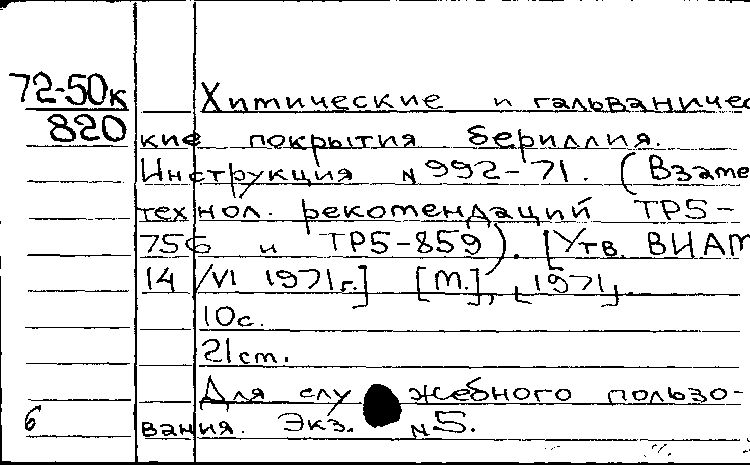 72-50к Химические и гальваничес
820 кие покрытия бериллия.
Инструкция N 992-71. (Взаме
технол. рекомендаций ТР5-
756 и ТР5-859). [Утв. ВИАМ
14/VI 1971г.] [М.], [1971].
10с.
21см.
Для служебного пользо-
6 вания. Экз. N 5.